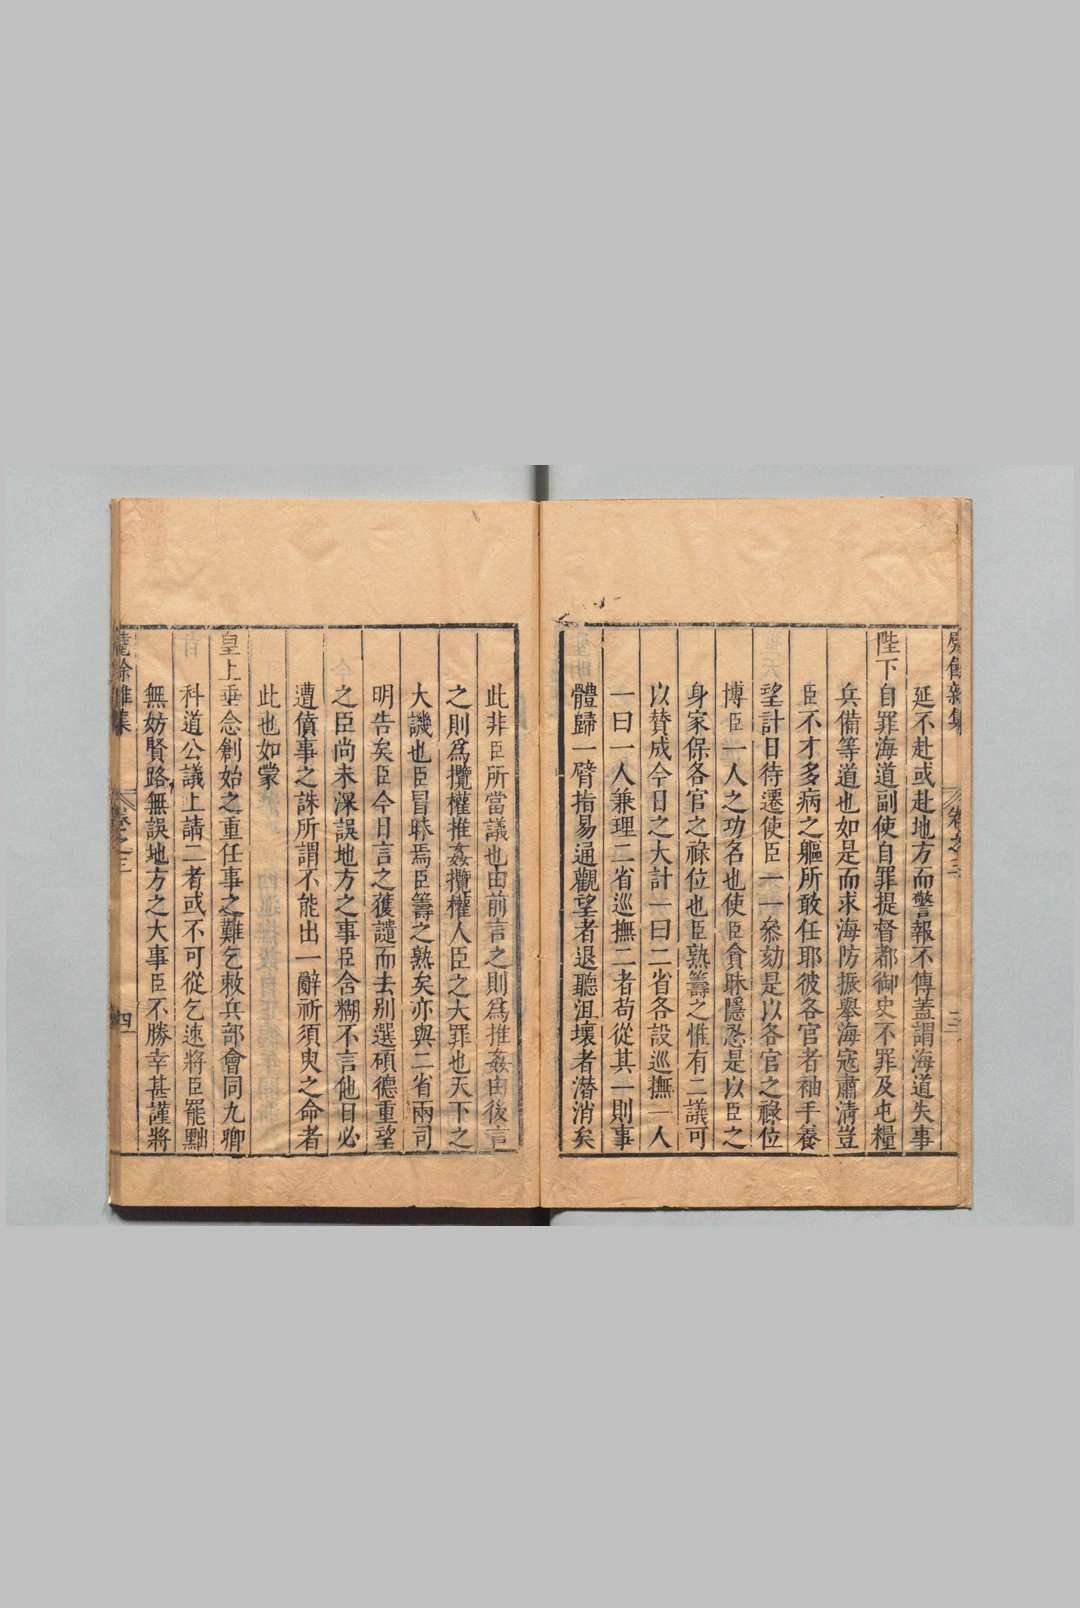 延不赴或赴地方而警報不傳蓋謂海道失事
陛下自罪海道副使自罪提督都御史不罪及屯糧
兵備等道也如是而求海防振舉海寇肅清豈
臣不才多病之軀所敢任耶彼各官者袖手養
望計日待遷使臣一一叅劾是以各官之祿位
博臣一人之功名也使臣貪昧隱忍是以臣之
身家保各官之祿位也臣熟籌之惟有二議可
以贊成今日之大計一曰二省各設巡撫一人
一曰一人兼理二省巡撫二者苟從其一則事
體歸一臂指易通觀望者退聽沮壞者潛消矣
卷之三
三
此非臣所當議也由前言之則爲推姦由後言
之則爲攬權推姦攬權人臣之大罪也天下之
大譏也臣冒昧焉臣籌之熟矣亦與二省兩司
明告矣臣今日言之獲譴而去別選碩德重望
之臣尚未深誤地方之事臣含糊不言他日必
遭僨事之誅所謂不能出一辭祈須臾之命者
此也如蒙
皇上垂念創始之重任事之難乞敕兵部會同九卿
科道公議上請二者或不可從乞速將臣罷黜
無妨賢路無誤地方之大事臣不勝幸甚謹將
卷之三
四